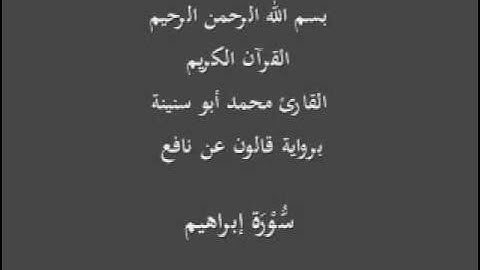 بسم الله الرحمن الرحيم
القرآن الكريم
القارئ محمد أبو سنينة
برواية قالون عن نافع
سُّوْرَة إبراهيم